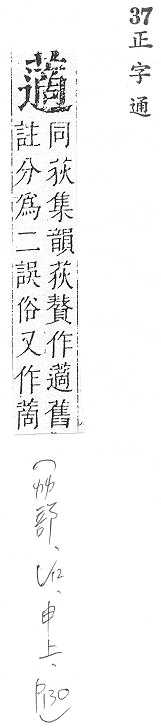 37
正字通
薖
同荻集韻荻贅作薖舊
註分爲二誤俗又作蔏
(艸部、U12、申上、P130)